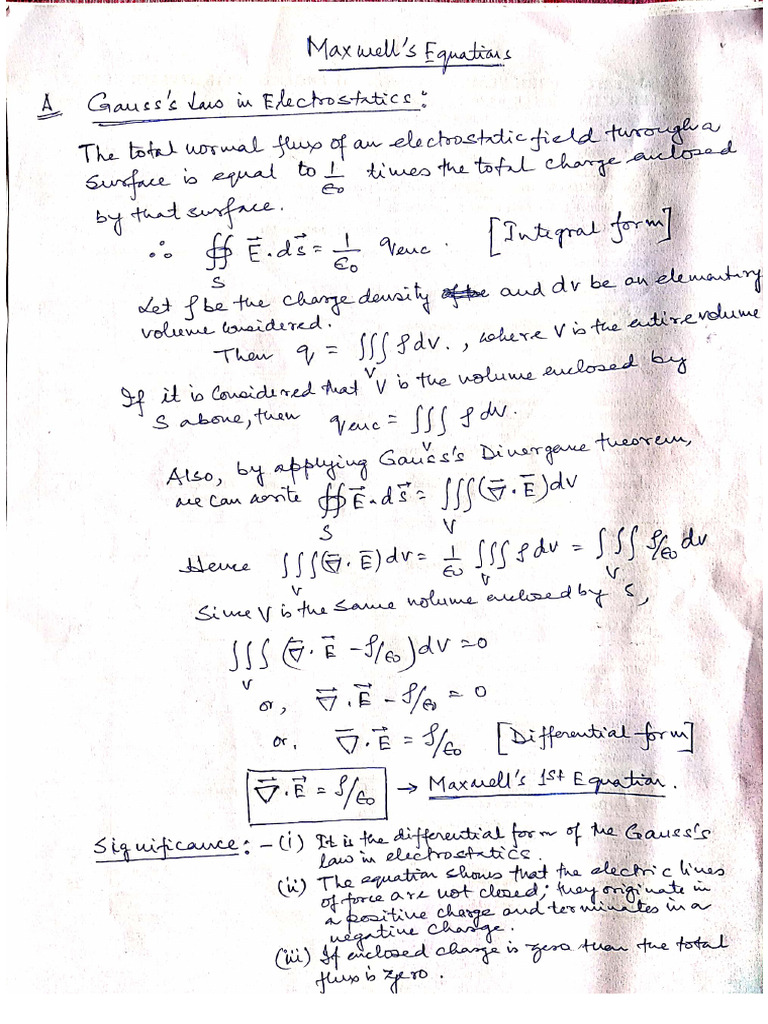 Maxwell's Equations
A Gauss's Law in Electrostatics:
The total normal flux of an electrostatic field through a
surface is equal to 1/ε₀ times the total charge enclosed
by that surface.
∴ ∯_S E⃗.ds⃗ = 1/ε₀ q_enc. [Integral form]
Let ρ be the charge density and dv be an elementary
volume considered.
Then q = ∭_V ρdv., where V is the entire volume
If it is considered that V is the volume enclosed by
S above, then q_enc = ∭_V ρ dv.
Also, by applying Gauss's Divergence theorem,
we can write ∯_S E⃗.ds⃗ = ∭_V (∇⃗.E⃗)dv
Hence ∭_V (∇⃗.E⃗)dv = 1/ε₀ ∭_V ρdv = ∭_V ρ/ε₀ dv
Since V is the same volume enclosed by S,
∭_V (∇⃗.E⃗ - ρ/ε₀)dv = 0
or, ∇⃗.E⃗ - ρ/ε₀ = 0
or. ∇⃗.E⃗ = ρ/ε₀ [Differential form]
∇⃗.E⃗ = ρ/ε₀ → Maxwell's 1st Equation.
Significance: - (i) It is the differential form of the Gauss's
law in electrostatics.
(ii) The equation shows that the electric lines
of force are not closed; they originate in
a positive charge and terminates in a
negative charge.
(iii) If enclosed charge is zero than the total
flux is zero.